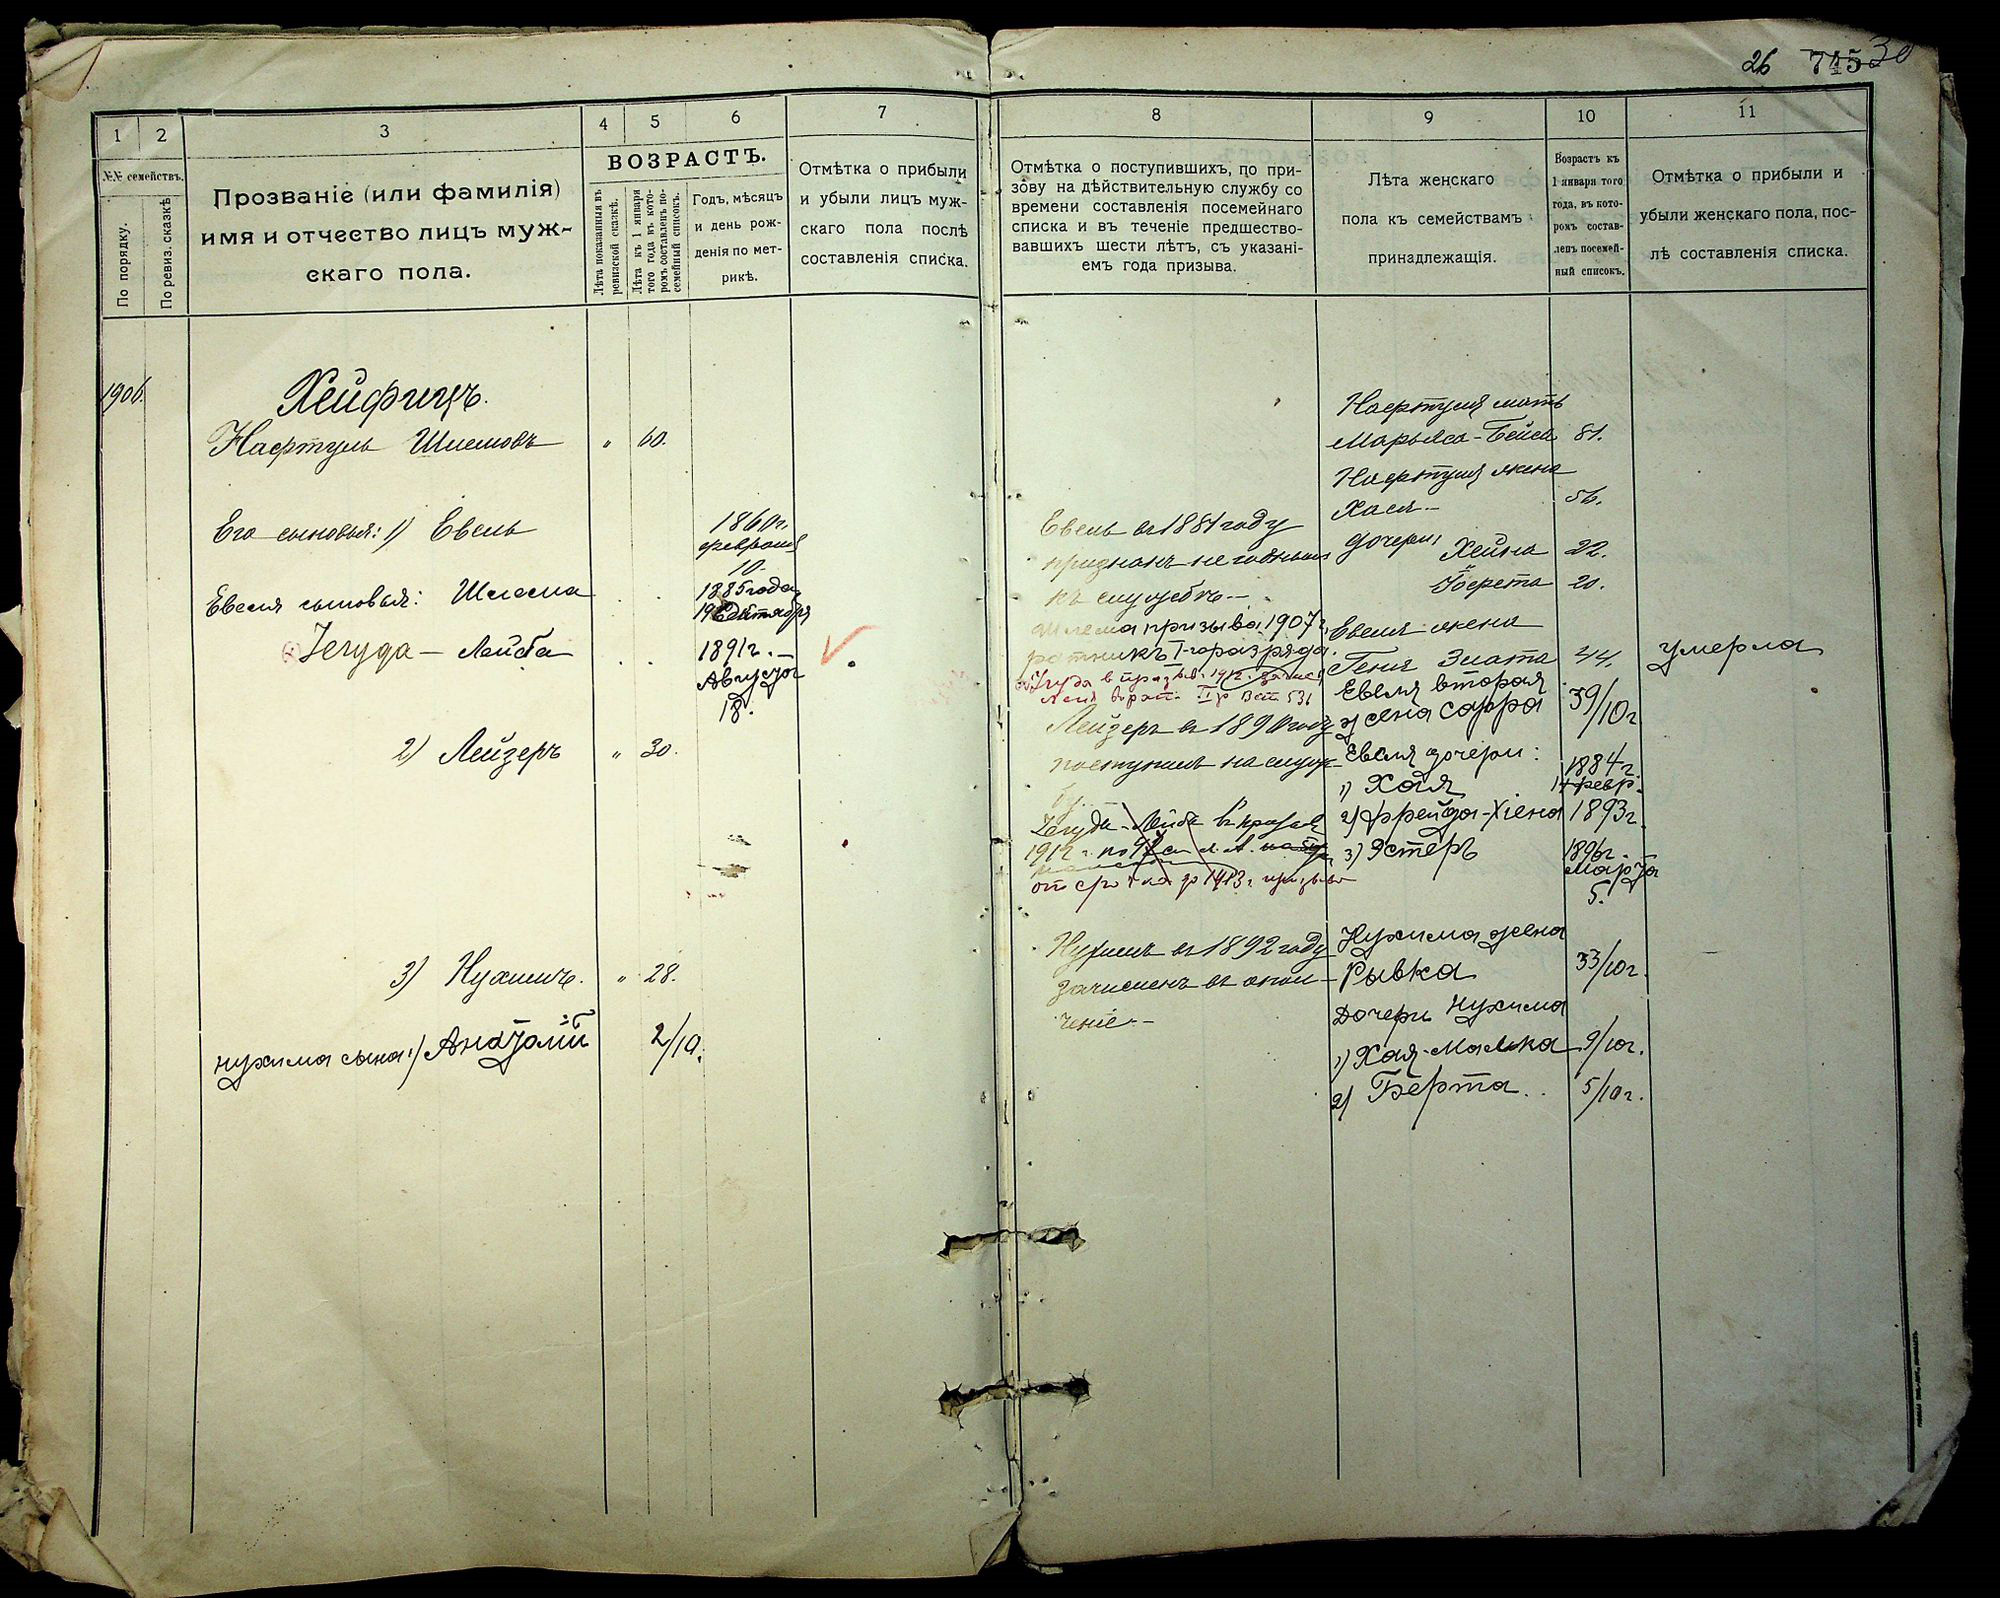 26 745 30
1
2
3
4
5
6
7
8
9
10
11
№№ семействъ.
По порядку.
По ревиз. сказкѣ
Прозваніе (или фамилія)
имя и отчество лицъ муж-
скаго пола.
ВОЗРАСТЪ.
Лѣта показанныя въ
ревизской сказкѣ.
Лѣта къ 1 января
того года въ кото-
ромъ составленъ по-
семейный списокъ.
Годъ, мѣсяцъ
и день рож-
денія по мет-
рикѣ.
Отмѣтка о прибыли
и убыли лицъ муж-
скаго пола послѣ
составленія списка.
Отмѣтка о поступившихъ, по при-
зову на дѣйствительную службу со
времени составленія посемейнаго
списка и въ теченіе предшество-
вавшихъ шести лѣтъ, съ указані-
емъ года призыва.
Лѣта женскаго
пола къ семействамъ
принадлежащія.
Возрастъ къ
1 января того
года, въ кото-
ромъ состав-
ленъ посемей-
ный списокъ.
Отмѣтка о прибыли и
убыли женскаго пола, пос-
лѣ составленія списка.
1906.
Хейфицъ.
Нафтуль Шлемовъ " 60.
Его сыновья: 1) Евель
1860г.
февраля
10.
Евеля сыновья: Шлема
1885 года
19 Октября
Іегуда - Лейба
1891г.
Августа
18.
2) Лейзеръ " 30.
3) Нухимъ. " 28.
Нухима сына: 1) Анатолій 2/10.
Евель въ 1881 году
признанъ не годнымъ
къ службѣ
Шлема призыва 1907 г.
ратникъ I-го разряда.
Іегуда в призыв. 1912 г. зачис.
Лейзеръ въ 1890 году
поступилъ на служ-
бу.
Іегуда-Лейба въ призыв
1912 г.
отсрочка до 1913 г. призыва
Нухимъ въ 1892 году
зачисленъ въ опол-
ченіе
Нафтуля мать
Марьяса-Бейля 81.
Нафтуля жена
Хася 56.
дочери: Хейна 22.
20.
Евеля жена
Геня Злата 44. умерла
Евеля вторая
жена Сарра 39/10 г
Евеля дочери:
1) Хая
1884 г.
14 февр.
2) Фрейда-Хіена 1893 г.
3) Эстеръ
1896 г.
Марта
5.
Нухима жена
Рывка 33/10 г.
Дочери Нухима
1) Хая-Малка 9/10 г.
2) Берта 5/10 г.